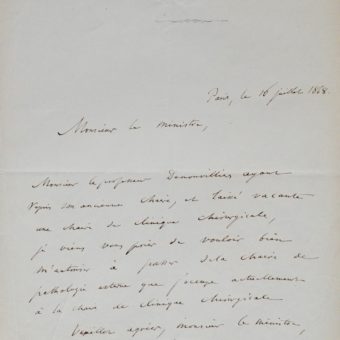 Paris, le 16 juillet 1868.
Monsieur le ministre,
Monsieur le professeur Denonvilliers ayant
repris son ancienne chaire, et laissé vacante
une chaire de clinique chirurgicale,
je viens vous prier de vouloir bien
m'autoriser à passer de la chaire de
pathologie externe que j'occupe actuellement
à la chaire de clinique chirurgicale
Veuillez agréer, monsieur le ministre,